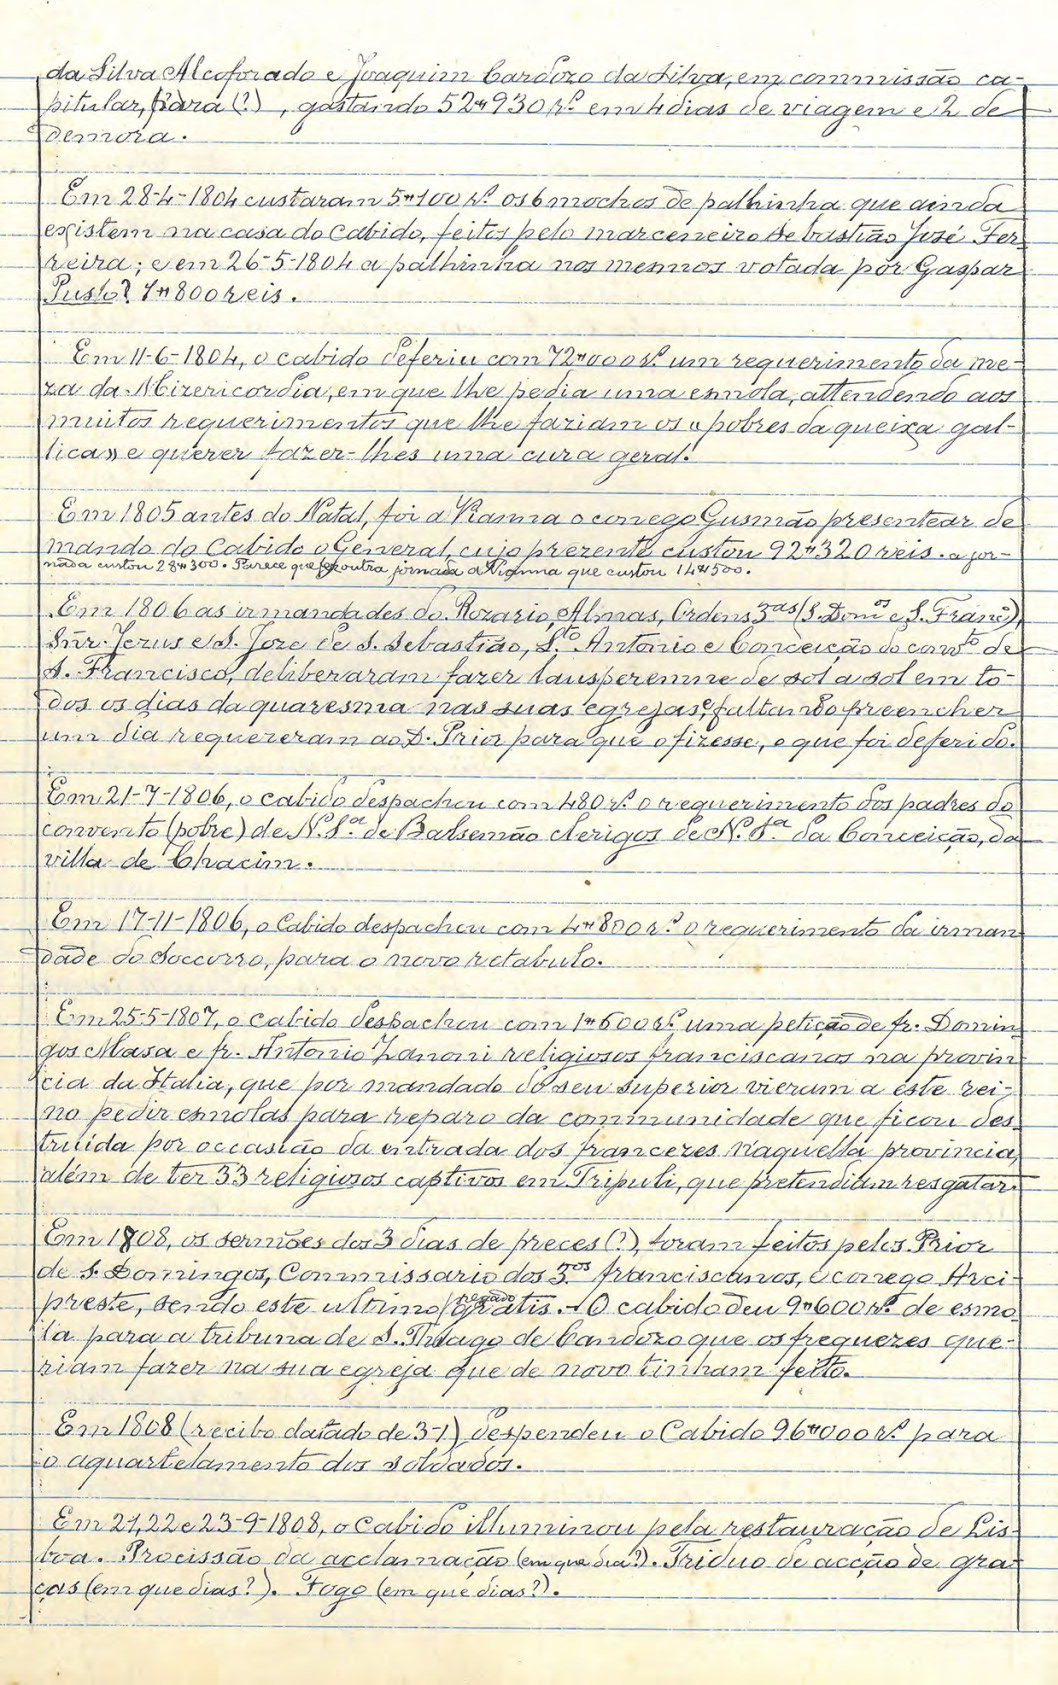 da Silva Alcoforado e Joaquim Cardozo da Silva, em commissão ca-
pitular, para (?), gastando 52#930 rs. em 4 dias de viagem e 2 de
demora.
Em 28-4-1804 custaram 5#100 rs. os 6 mochos de palhinha que ainda
existem na casa do Cabido, feitos pelo marceneiro Sebastião José Fer-
reira; e em 26-5-1804 a palhinha nos mesmos votada por Gaspar
Pusto? 7#800 reis.
Em 11-6-1804, o cabido deferiu com 72#000 rs. um requerimento da me-
za da Mizericordia, em que lhe pedia uma esmola, attendendo aos
muitos requerimentos que lhe faziam os "pobres da queixa gal-
lica» e querer fazer-lhes uma cura geral.
Em 1805 antes do Natal, foi a Vianna o conego Gusmão presentear de
mando do Cabido o General, cujo prezente custou 92#320 reis. a jor-
nada custou 28#300. Parece que fez outra jornada a Vianna que custou 14#500.
Em 1806 as irmandades do Rozario, Almas, Ordens 3as (S. Domos e S. Franco),
Snr. Jezus e S. Joze de S. Sebastião, Sto Antonio e Conceição do convto de
S. Francisco, deliberaram fazer lausperenne de sol a sol em to-
dos os dias da quaresma nas suas egrejas, e faltando preencher
um dia requereram ao D. Prior para que o fizesse, o que foi deferido.
Em 21-7-1806, o cabido despachou com 480 rs. o requerimento dos padres do
convento (pobre) de N. Sa de Balsemão clerigos de N. Sa da Conceição, da
villa de Chacim.
Em 17-11-1806, o Cabido despachou com 4#800 rs. o requerimento da irman-
dade do Soccorro, para o novo retabulo.
Em 25-5-1807, o cabido despachou com 1#600 rs. uma petição de fr. Domin-
gos Masa e fr. Antonio Zanoni religiosos franciscanos na provin-
cia da Italia, que por mandado do seu superior vieram a este rei-
no pedir esmolas para reparo da communidade que ficou des-
truida por occasião da entrada dos francezes n'aquella provincia,
além de ter 33 religiosos captivos em Tripuli, que pretendiam resgatar.
Em 1808, os sermões dos 3 dias de preces (?), foram feitos pelos Prior
de S. Domingos, Commissario dos 3os franciscanos, e conego Arci-
preste, sendo este ultimo pregado gratis. - O cabido deu 9#600 rs. de esmo-
la para a tribuna de S. Thiago de Candozo que os freguezes que-
riam fazer na sua egreja que de novo tinham feito.
Em 1808 (recibo datado de 3-1) despendeu o Cabido 96#000 rs. para
o aquartelamento dos soldados.
Em 21, 22 e 23-9-1808, o Cabido illuminou pela restauração de Lis-
boa. Procissão da acclamação (em que dia?). Triduo de acção de gra-
ças (em que dias?). Fogo (em que dias?).